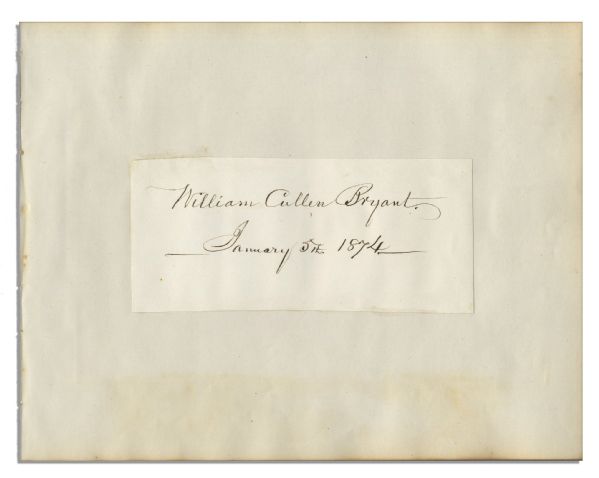 William Cullen Bryant.
January 5th 1874